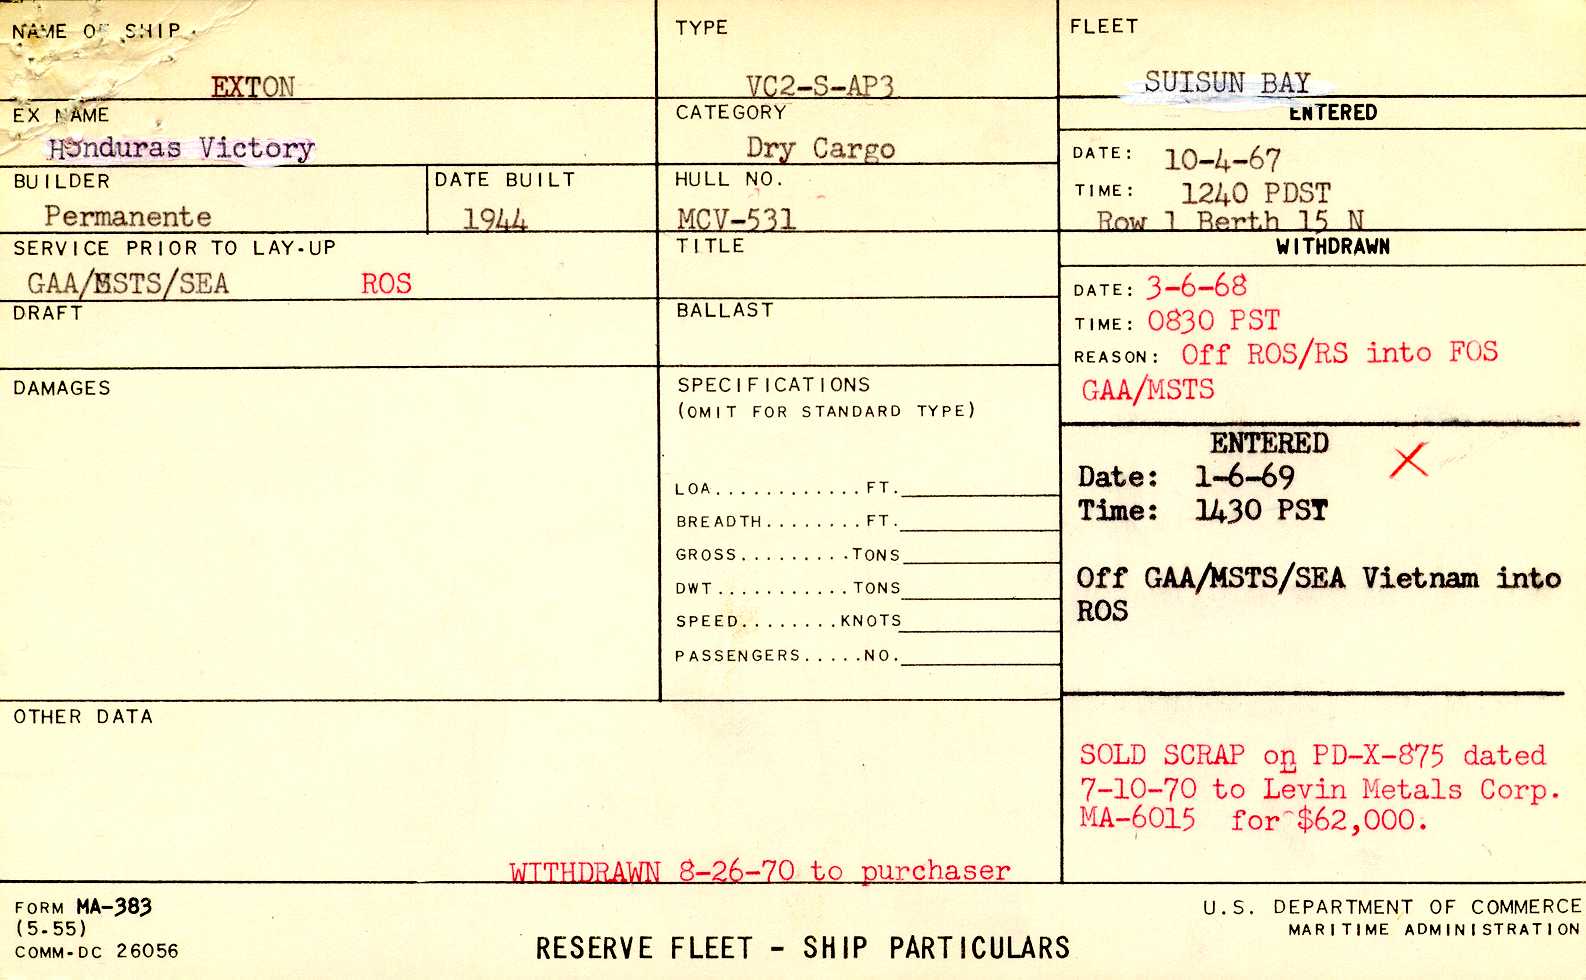 NAME OF SHIP
EXTON
EX NAME
Honduras Victory
BUILDER
Permanente
DATE BUILT
1944
SERVICE PRIOR TO LAY-UP
GAA/MSTS/SEA ROS
DRAFT
DAMAGES
OTHER DATA
WITHDRAWN 8-26-70 to purchaser
TYPE
VC2-S-AP3
CATEGORY
Dry Cargo
HULL NO.
MCV-531
TITLE
BALLAST
SPECIFICATIONS
(OMIT FOR STANDARD TYPE)
LOA............FT.
BREADTH........FT.
GROSS.........TONS
DWT...........TONS
SPEED........KNOTS
PASSENGERS.....NO.
FLEET
SUISUN BAY
ENTERED
DATE: 10-4-67
TIME: 1240 PDST
Row 1 Berth 15 N
WITHDRAWN
DATE: 3-6-68
TIME: 0830 PST
REASON: Off ROS/RS into FOS
GAA/MSTS
ENTERED X
Date: 1-6-69
Time: 1430 PST
Off GAA/MSTS/SEA Vietnam into
ROS
SOLD SCRAP on PD-X-875 dated
7-10-70 to Levin Metals Corp.
MA-6015 for $62,000.
FORM MA-383
(5-55)
COMM-DC 26056
RESERVE FLEET - SHIP PARTICULARS
U.S. DEPARTMENT OF COMMERCE
MARITIME ADMINISTRATION